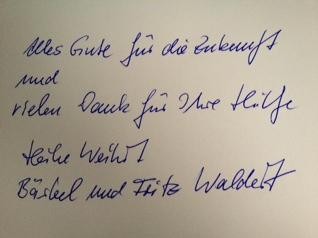 Alles Gute für die Zukunft
und
vielen Dank für Ihre Hilfe
Heike
Bärbel und Fritz